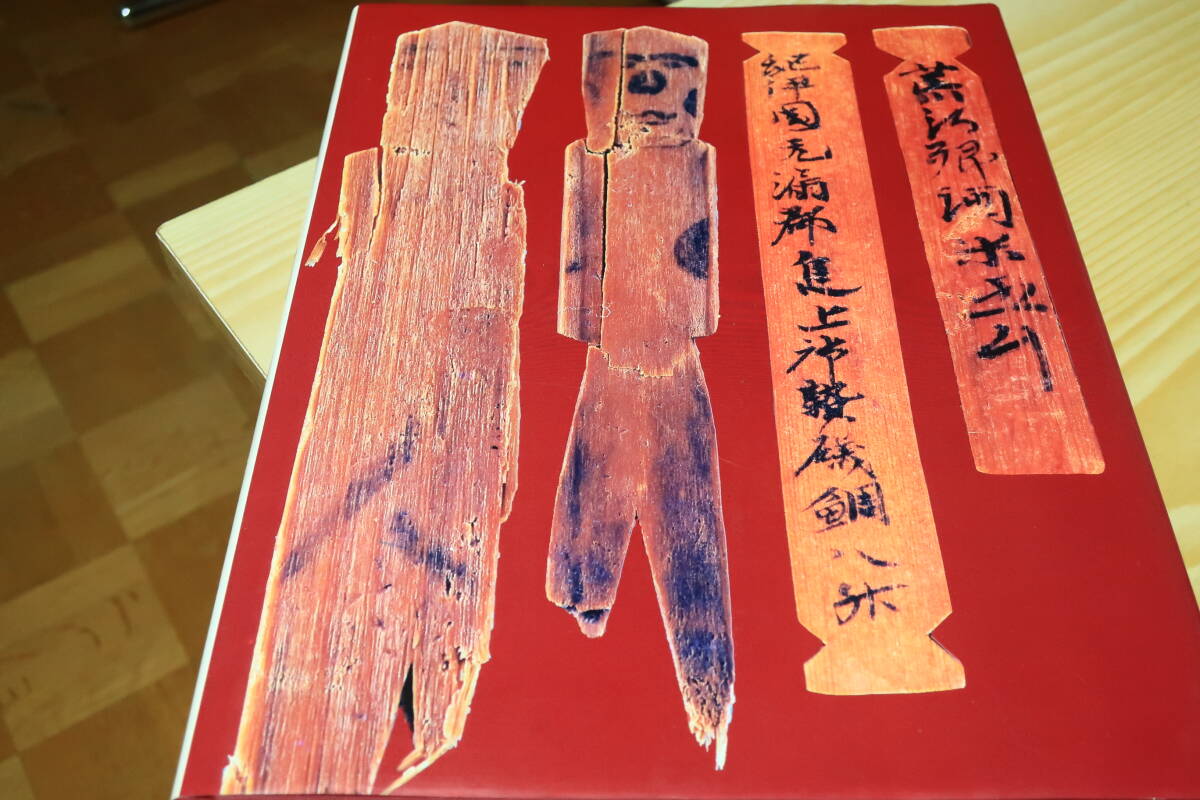 調米
紀伊国无漏郡進上御贄磯鯛八升